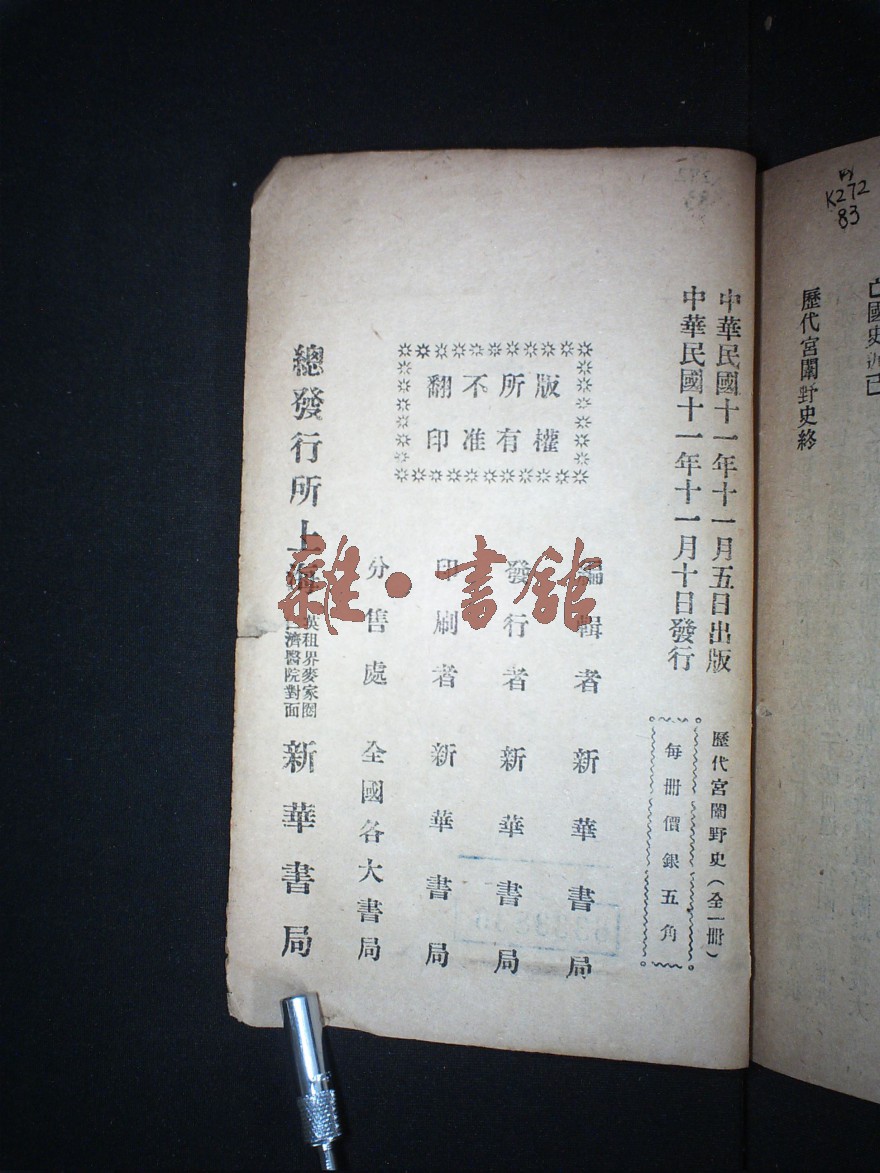 K272
83
歷代宮闈野史終
中華民國十一年十一月五日出版
中華民國十一年十一月十日發行
歷代宮闈野史（全一册）
每册價銀五角
版權
所有
不准
翻印
編輯者 新華書局
發行者 新華書局
印刷者 新華書局
分售處 全國各大書局
總發行所上海
英租界麥家圈
濟醫院對面
新華書局
雜·書館